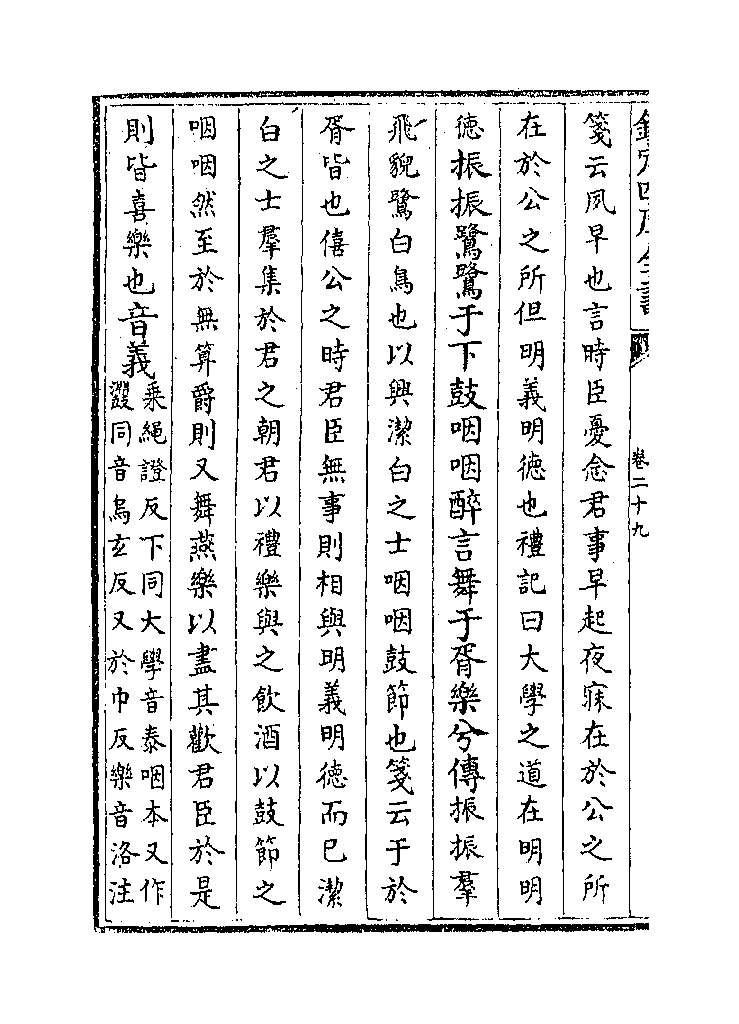 欽定四庫全書
卷二十九
箋云夙早也言時臣憂念君事早起夜寐在於公之所
在於公之所但明義明徳也禮記曰大學之道在明明
徳振振鷺鷺于下鼓咽咽醉言舞于胥樂兮傳振振羣
飛貌鷺白鳥也以興潔白之士咽咽鼓節也箋云于於
胥皆也僖公之時君臣無事則相與明義明徳而已潔
白之士羣集於君之朝君以禮樂與之飲酒以鼓節之
咽咽然至於無算爵則又舞燕樂以盡其歡君臣於是
則皆喜樂也音義
乗繩證反下同大學音泰咽本又作
鼝同音烏玄反又於巾反樂音洛注